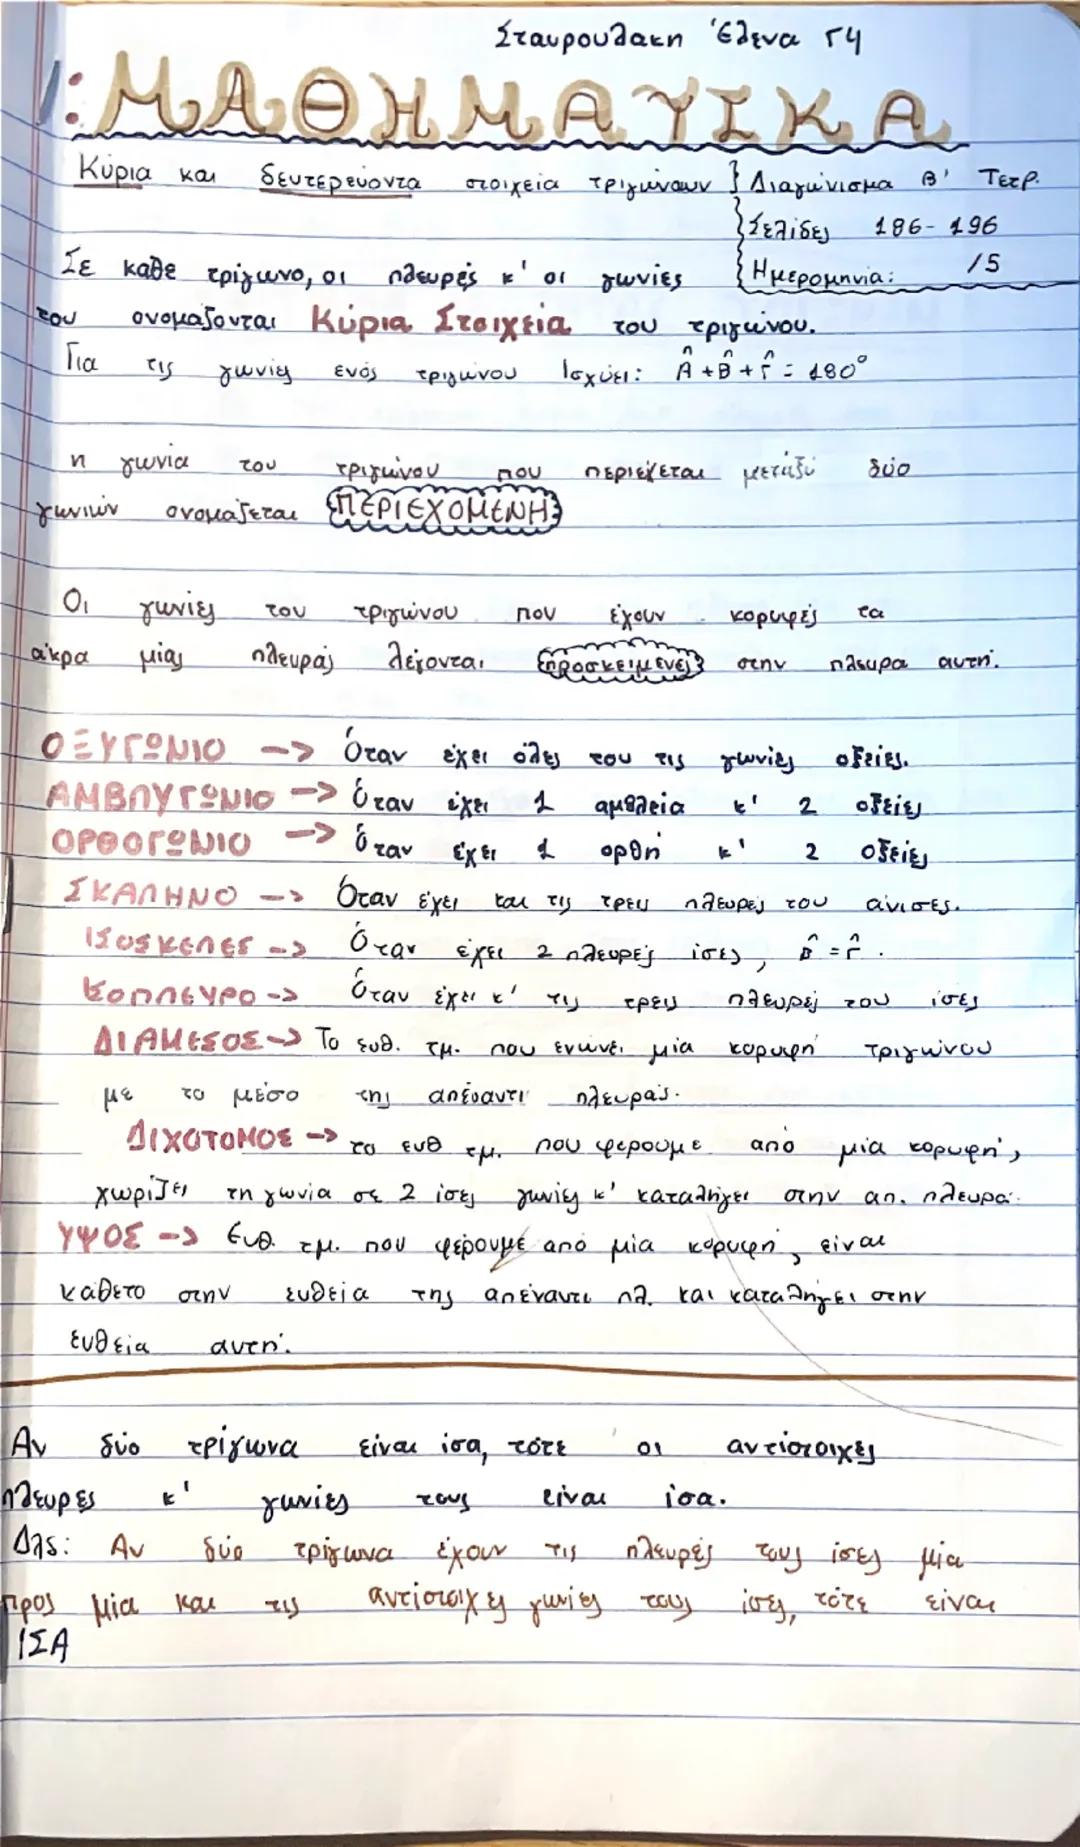 Σταυρουλακη Έλενα Γ4
ΜΑΘΗΜΑΤΙΚΑ
Κύρια και δευτερεύοντα στοιχεία τριγώνων } Διαγώνισμα Β' Τετρ.
Σελίδες 186-196
Ημερομηνία: /5
Σε κάθε τρίγωνο, οι πλευρές κ' οι γωνίες
του ονομάζονται Κύρια Στοιχεία του τριγώνου.
Για τις γωνίες ενός τριγώνου Ισχύει: Â + B̂ + Γ̂ = 180°
η γωνία του τριγώνου που περιέχεται μεταξύ δύο
γωνιών ονομάζεται ΠΕΡΙΕΧΟΜΕΝΗ
Οι γωνίες του τριγώνου που έχουν κορυφές τα
άκρα μίας πλευράς λέγονται προσκείμενες στην πλευρα αυτή.
ΟΞΥΓΩΝΙΟ –> Όταν έχει όλες του τις γωνίες οξείες.
ΑΜΒΛΥΓΩΝΙΟ –> Όταν έχει 1 αμβλεία κ' 2 οξείες
ΟΡΘΟΓΩΝΙΟ –> Όταν έχει 1 ορθή κ' 2 οξείες
ΣΚΑΛΗΝΟ –> Όταν έχει και τις τρεις πλευρές του άνισες.
ΙΣΟΣΚΕΛΕΣ –> Όταν έχει 2 πλευρές ίσες, B̂ = Γ̂.
–> Όταν έχει κ' τις τρεις πλευρές του ίσες
ΔΙΑΜΕΣΟΣ –> Το ευθ. τμ. που ενώνει μία κορυφή τριγώνου
με το μέσο της απέναντι πλευράς.
ΔΙΧΟΤΟΜΟΣ –> το ευθ τμ. που φερουμε από μία κορυφή,
χωρίζει τη γωνία σε 2 ίσες γωνίες κ' καταλήγει στην απ. πλευρά.
ΥΨΟΣ –> Ευθ. τμ. που φέρουμε από μία κορυφή, είναι
κάθετο στην ευθεία της απέναντι πλ. και καταλήγει στην
ευθεία αυτή.
Αν δύο τρίγωνα είναι ίσα, τότε οι αντίστοιχες
πλευρές κ' γωνίες τους είναι ίσα.
Δλδ: Αν δύο τρίγωνα έχουν τις πλευρές τους ίσες μία
προς μία και τις αντίστοιχες γωνίες τους ίσες, τότε είναι
ΙΣΑ